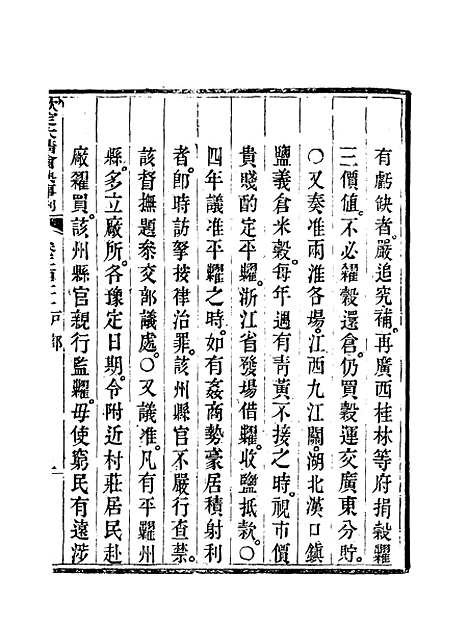 有虧缺者。嚴追究補。再廣西桂林等府捐穀糶
三價值。不必糴穀還倉。仍買穀運交廣東分貯。
○又奏准兩淮各場。江西九江關。湖北漢口鎮
鹽義倉米穀。每年遇有靑黃不接之時。視市價
貴賤酌定平糶。浙江省發場借糶。收鹽抵款。○
四年議准平糶之時。如有姦商勢豪居積射利
者。卽時訪拏按律治罪。該州縣官不嚴行查禁。
該督撫題參交部議處。○又議准。凡有平糶州
縣。多立廠所。各豫定日期。令附近村莊居民赴
廠糴買。該州縣官親行監糶。毋使窮民有遠涉
欽定大淸會典事例
戶部